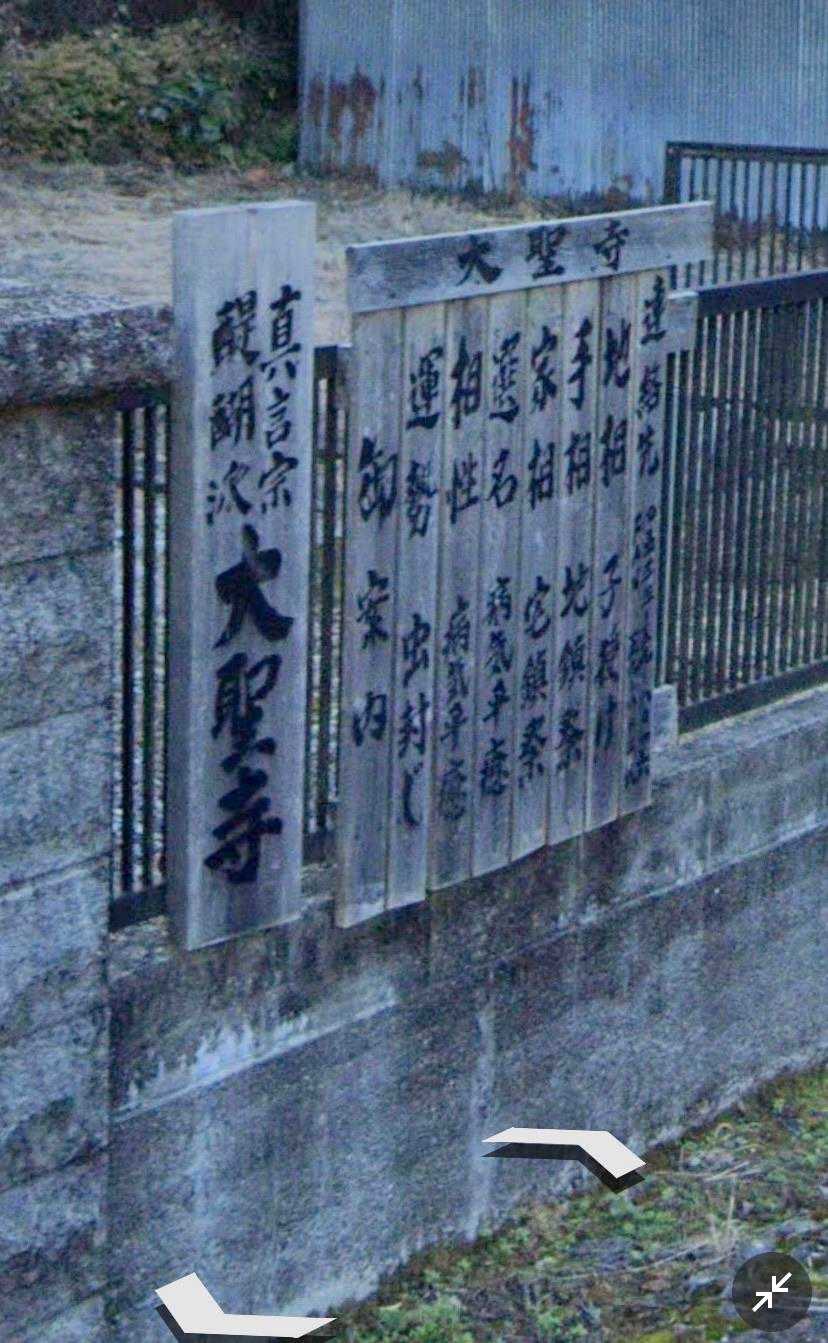 真言宗
醍醐派
大聖寺
大聖寺
連絡先
地相 子授け
手相 地鎮祭
家相 宅鎮祭
選名 病気平癒
相性 病気平癒
運勢 虫封じ
御案内